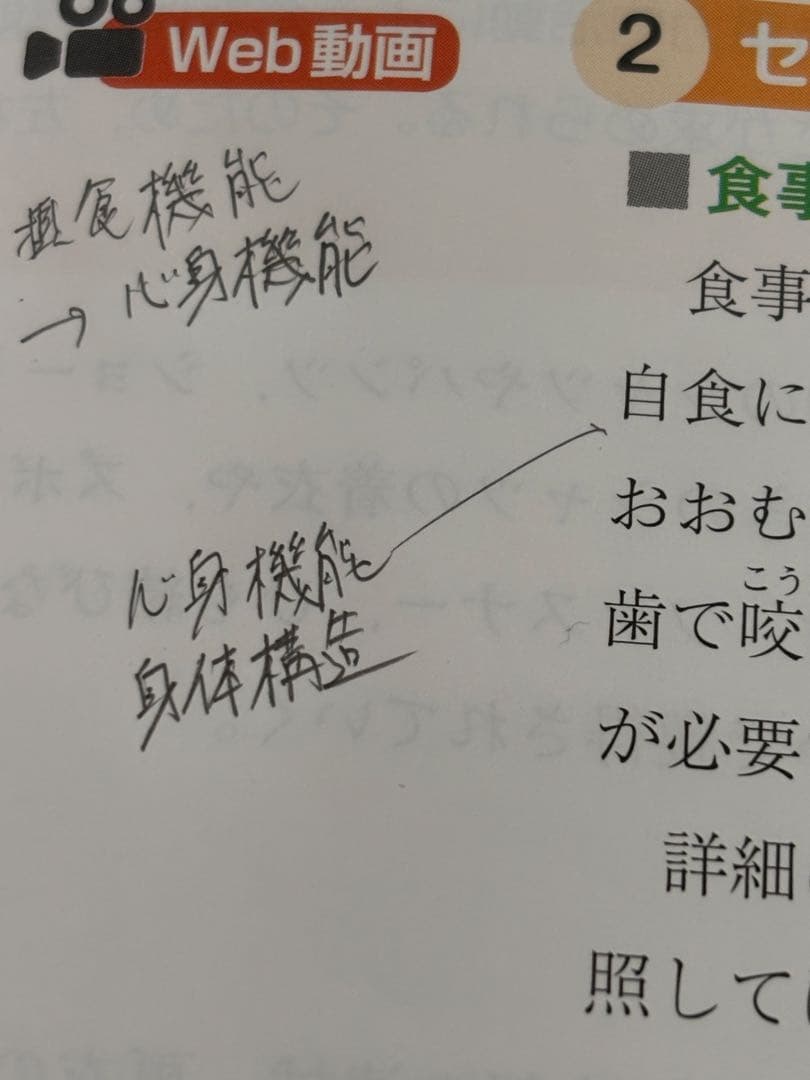 Web動画
2 セ
摂食機能
→ 心身機能
心身機能
身体構造
食事
食事
自食に
おおむ
こう
歯で咬
が必要
詳細
照して